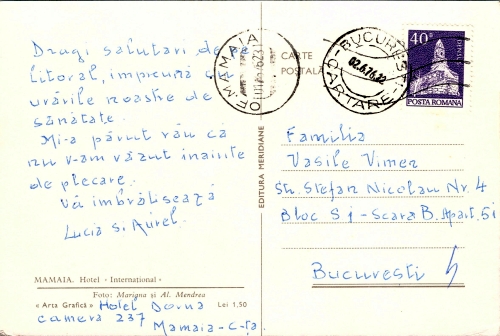 Dragi salutari de pe
litoral, impreună cu
urările noastre de
sănătate.
Mi-a părut rău că
nu v-am văzut inainte
de plecare.
Vă imbrățisează
Lucia si Aurel.
MAMAIA. Hotel « International »
Foto: Mariana și Al. Mendrea
« Arta Grafică » Lei 1,50
Hotel Doina
camera 237
Mamaia-C-ța
EDITURA MERIDIANE
CARTE
POȘTALĂ
OF. MAMAIA
BUCUREȘTI
CARTARE
02.6.76.12
40 B
DENSUȘ
POSTA ROMANA
Familia
Vasile Vimer
Str. Stefan Nicolau Nr. 4
Bloc S1 - Scara B. Apart. 51
București